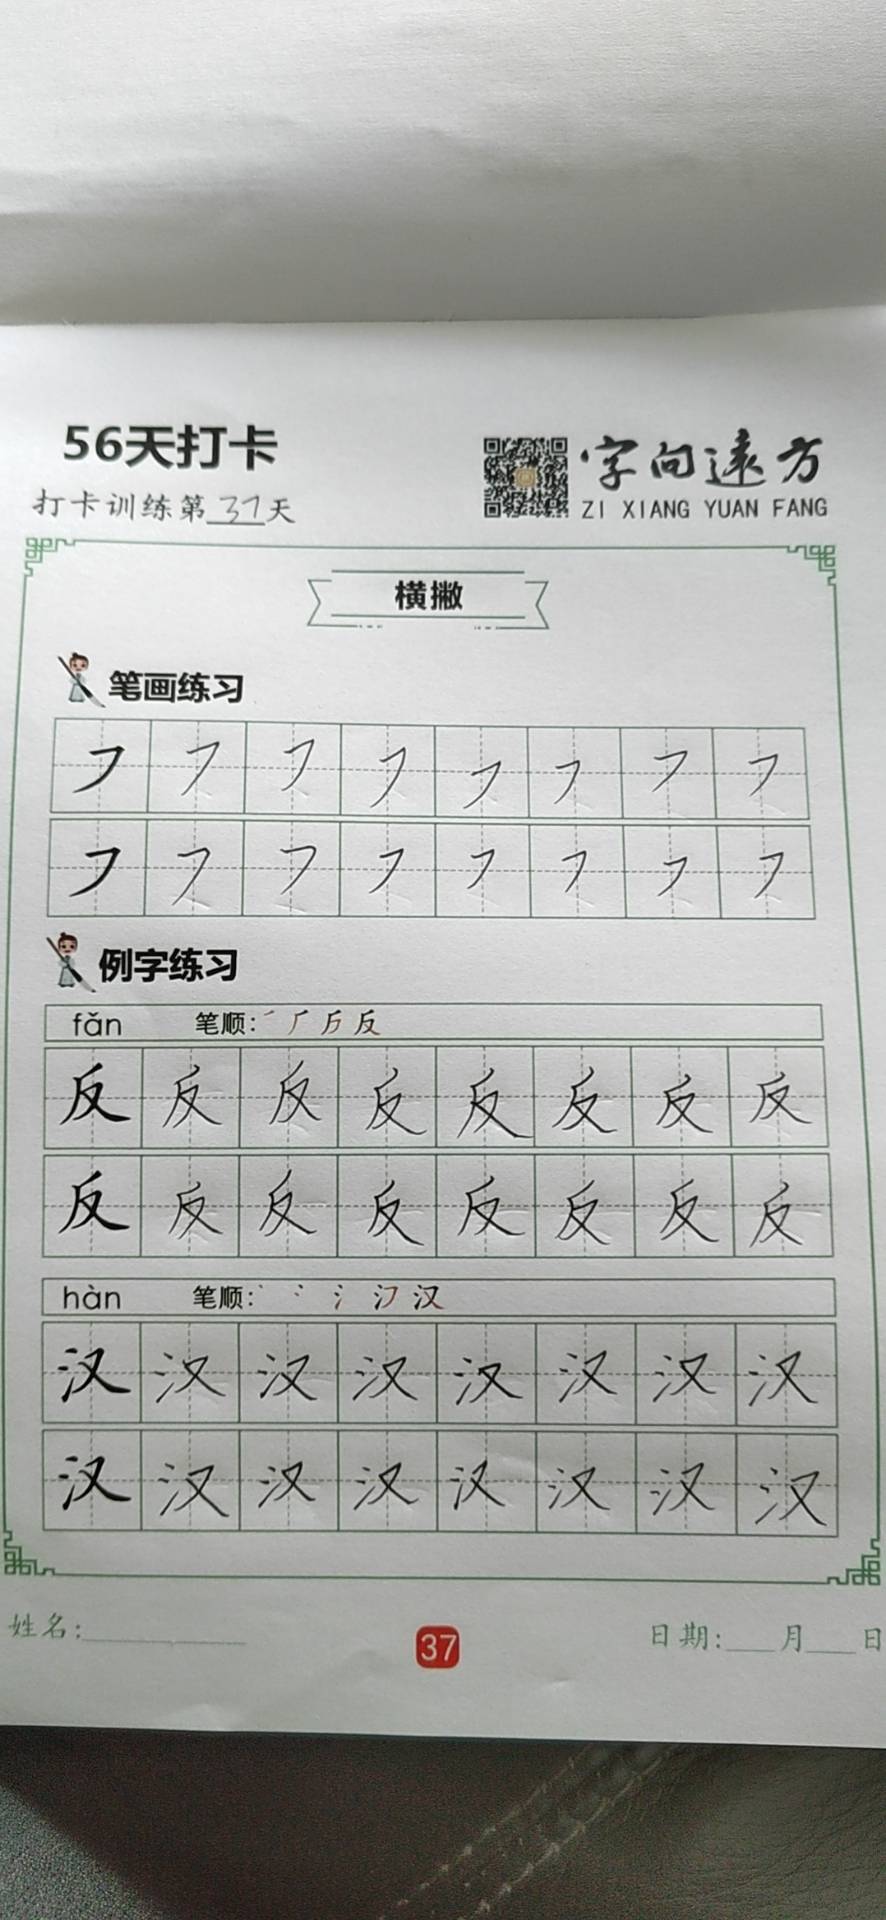 56天打卡
打卡训练第37天
字向远方
ZI XIANG YUAN FANG
横撇
笔画练习
㇇㇇㇇㇇㇇㇇㇇㇇
㇇㇇㇇㇇㇇㇇㇇㇇
例字练习
fǎn 笔顺: ㇒ 厂 反
反反反反反反反反
反反反反反反反反
hàn 笔顺: 丶 冫 氵 汉
汉汉汉汉汉汉汉汉
汉汉汉汉汉汉汉汉
姓名:________ 37 日期:___月___日